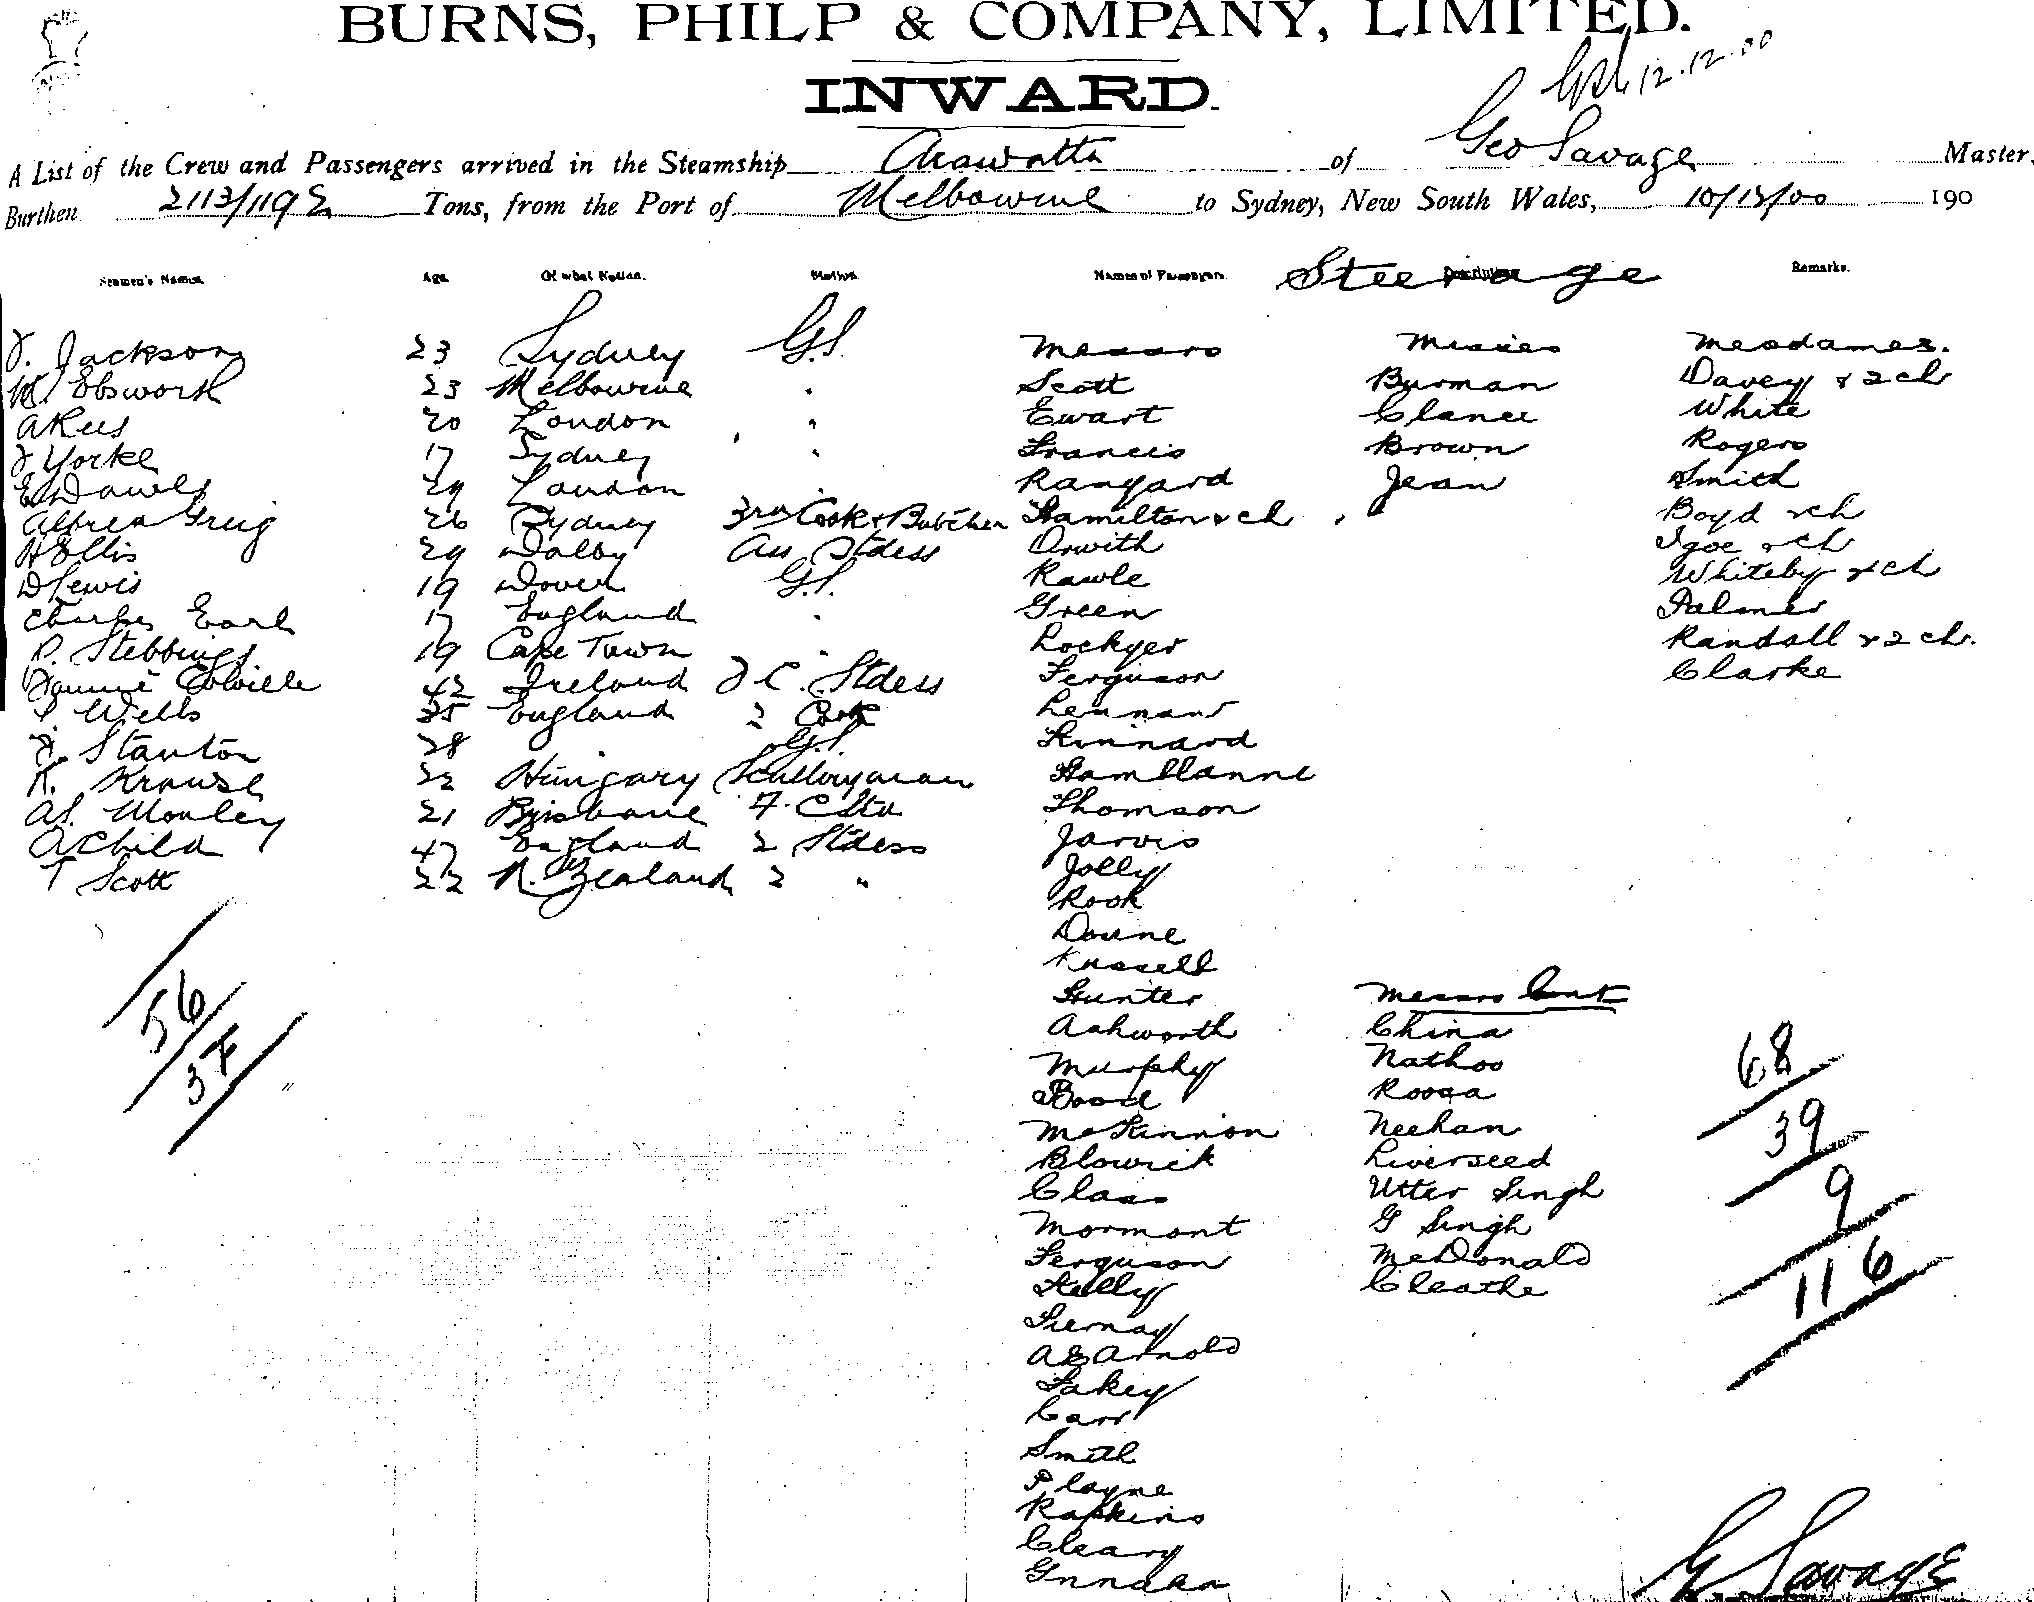 BURNS, PHILP & COMPANY, LIMITED.
12.12.00
INWARD.
A List of the Crew and Passengers arrived in the Steamship Arawatta of Geo Savage Master.
Burthen 2113/1192 Tons, from the Port of Melbourne to Sydney, New South Wales, 10/12/00 190
Seamen's Names. Age. Of what Nation. Station. Names of Passengers. Steerage Remarks.
J. Jackson 23 Sydney G.S. Messrs Misses Mesdames.
W Ebsworth 23 Melbourne " Scott Burman Davey & 2 ch
A Rees 20 London " Ewart Clance White
J Yorke 17 Sydney " Francis Brown Rogers
E Dawes 29 London Rangard Jean Smith
Alfred Greig 26 Sydney 3rd Cook & Butcher Hamilton & ch Boyd & ch
H Ellis 29 Dalby Ass Stdess Orwith Igoe & ch
D Lewis 19 Dover G.S. Rawle Whiteby & ch
Charles Earl 17 England " Green Palmer
P. Stebbings 19 Cape Town " Lockyer Randall & 2 ch.
Fannie Colville 42 Ireland F C. Stdess Ferguson Clarke
Wells 35 England 2 Cook Lennans
Stanton 28 " G.S. Kinnard
K. Krause 22 Hungary Sculleryman Hamblanne
A. Morley 21 Brisbane F. C Std Thomson
A Child 47 England 2 Stdess Jarvis
T Scott 22 N. Zealand 2 " Jolly
Rook
Doune
Russell
Hunter Messrs Cont
Ashworth China
Murphy Nathoo
Boord Roosa
McKinnon Neehan
Blowick Liverseed
Class Utter Singh
Mormont G Singh
Ferguson McDonald
Kelly Cleathe
Tiernay
A E Arnold
Fakey
Carr
Smith
Playne
Rapkins
Cleary
56
37
68
39
9
116
G Savage